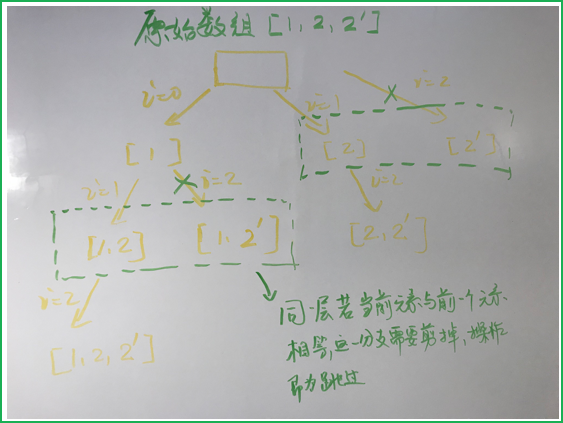 原始数组 [1, 2, 2']
i=0
i=1
i=2
[1]
[2]
[2']
i=1
i=2
i=2
[1, 2]
[1, 2']
[2, 2']
i=2
[1, 2, 2']
同一层若当前元素与前一个元素
相等,这一分支需要剪掉,操作
即为跳过